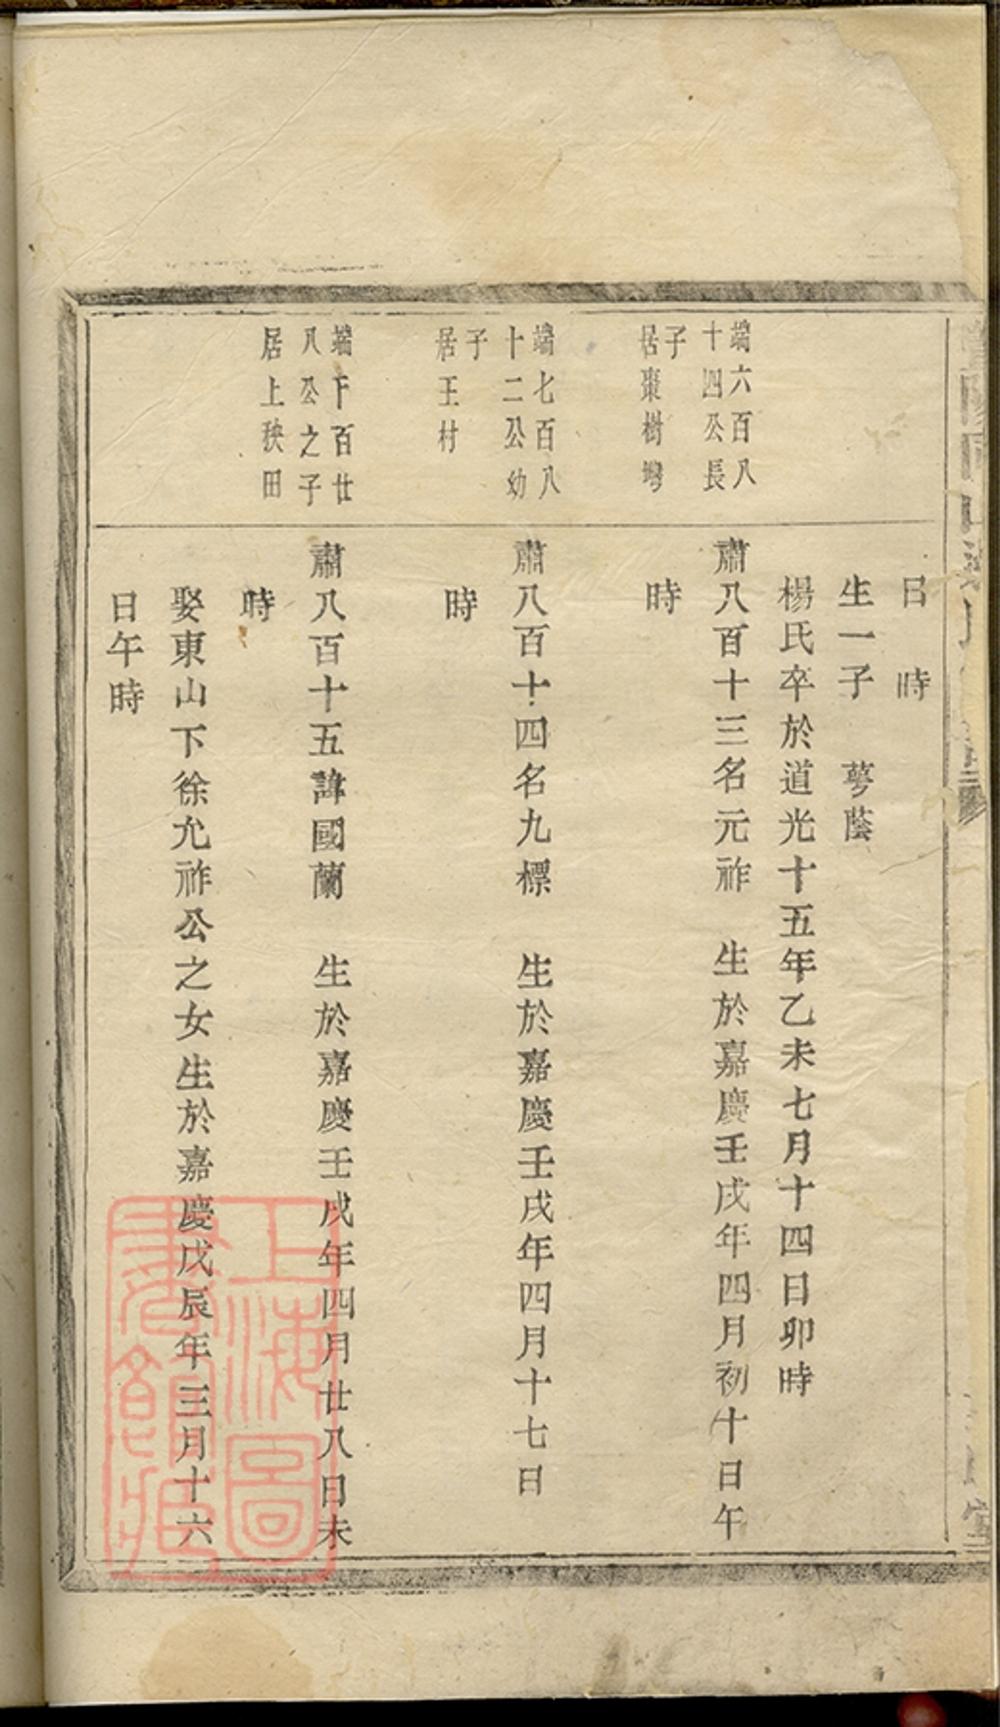 日　時
生一子　萼蔭
楊氏卒於道光十五年乙未七月十四日卯時
端六百八
十四公長
子
居棗樹灣
肅八百十三名元祚　生於嘉慶壬戌年四月初十日午
時
端七百八
十二公幼
子
居王村
肅八百十四名九標　生於嘉慶壬戌年四月十七日
時
端下百廿
八公之子
居上秧田
肅八百十五諱國蘭　生於嘉慶壬戌年四月廿八日未
時
娶東山下徐允祚公之女生於嘉慶戊辰年三月十六
日午時
上海圖
書館藏